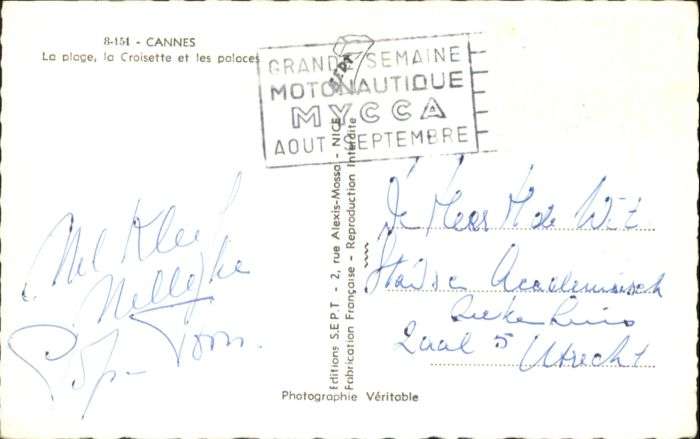 8-151 - CANNES
La plage, la Croisette et les palaces
GRANDE SEMAINE
MOTONAUTIQUE
MYCCA
AOUT SEPTEMBRE
Editions S.E.P.T - 2, rue Alexis-Mossa - NICE
Fabrication Française - Reproduction Interdite
Nel
De Heer M de Wit
Academisch
Zaal 5
Utrecht
Photographie Véritable